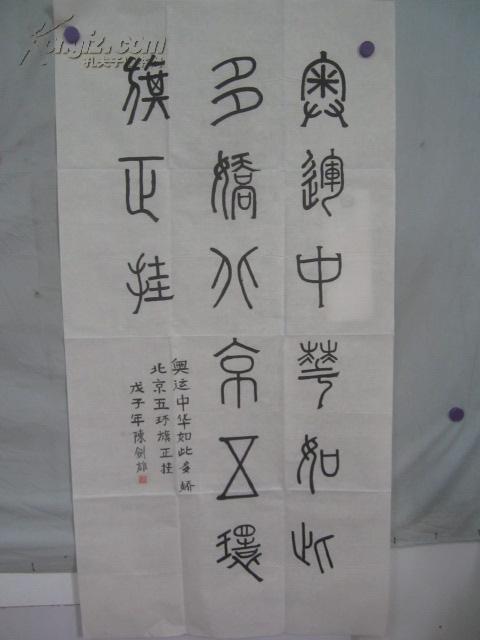 奥運中華如此
多嬌北京五環
旗正挂
奥运中华如此多娇
北京五环旗正挂
戊子年陳剑雄
Kongfz.com
孔夫子旧书网